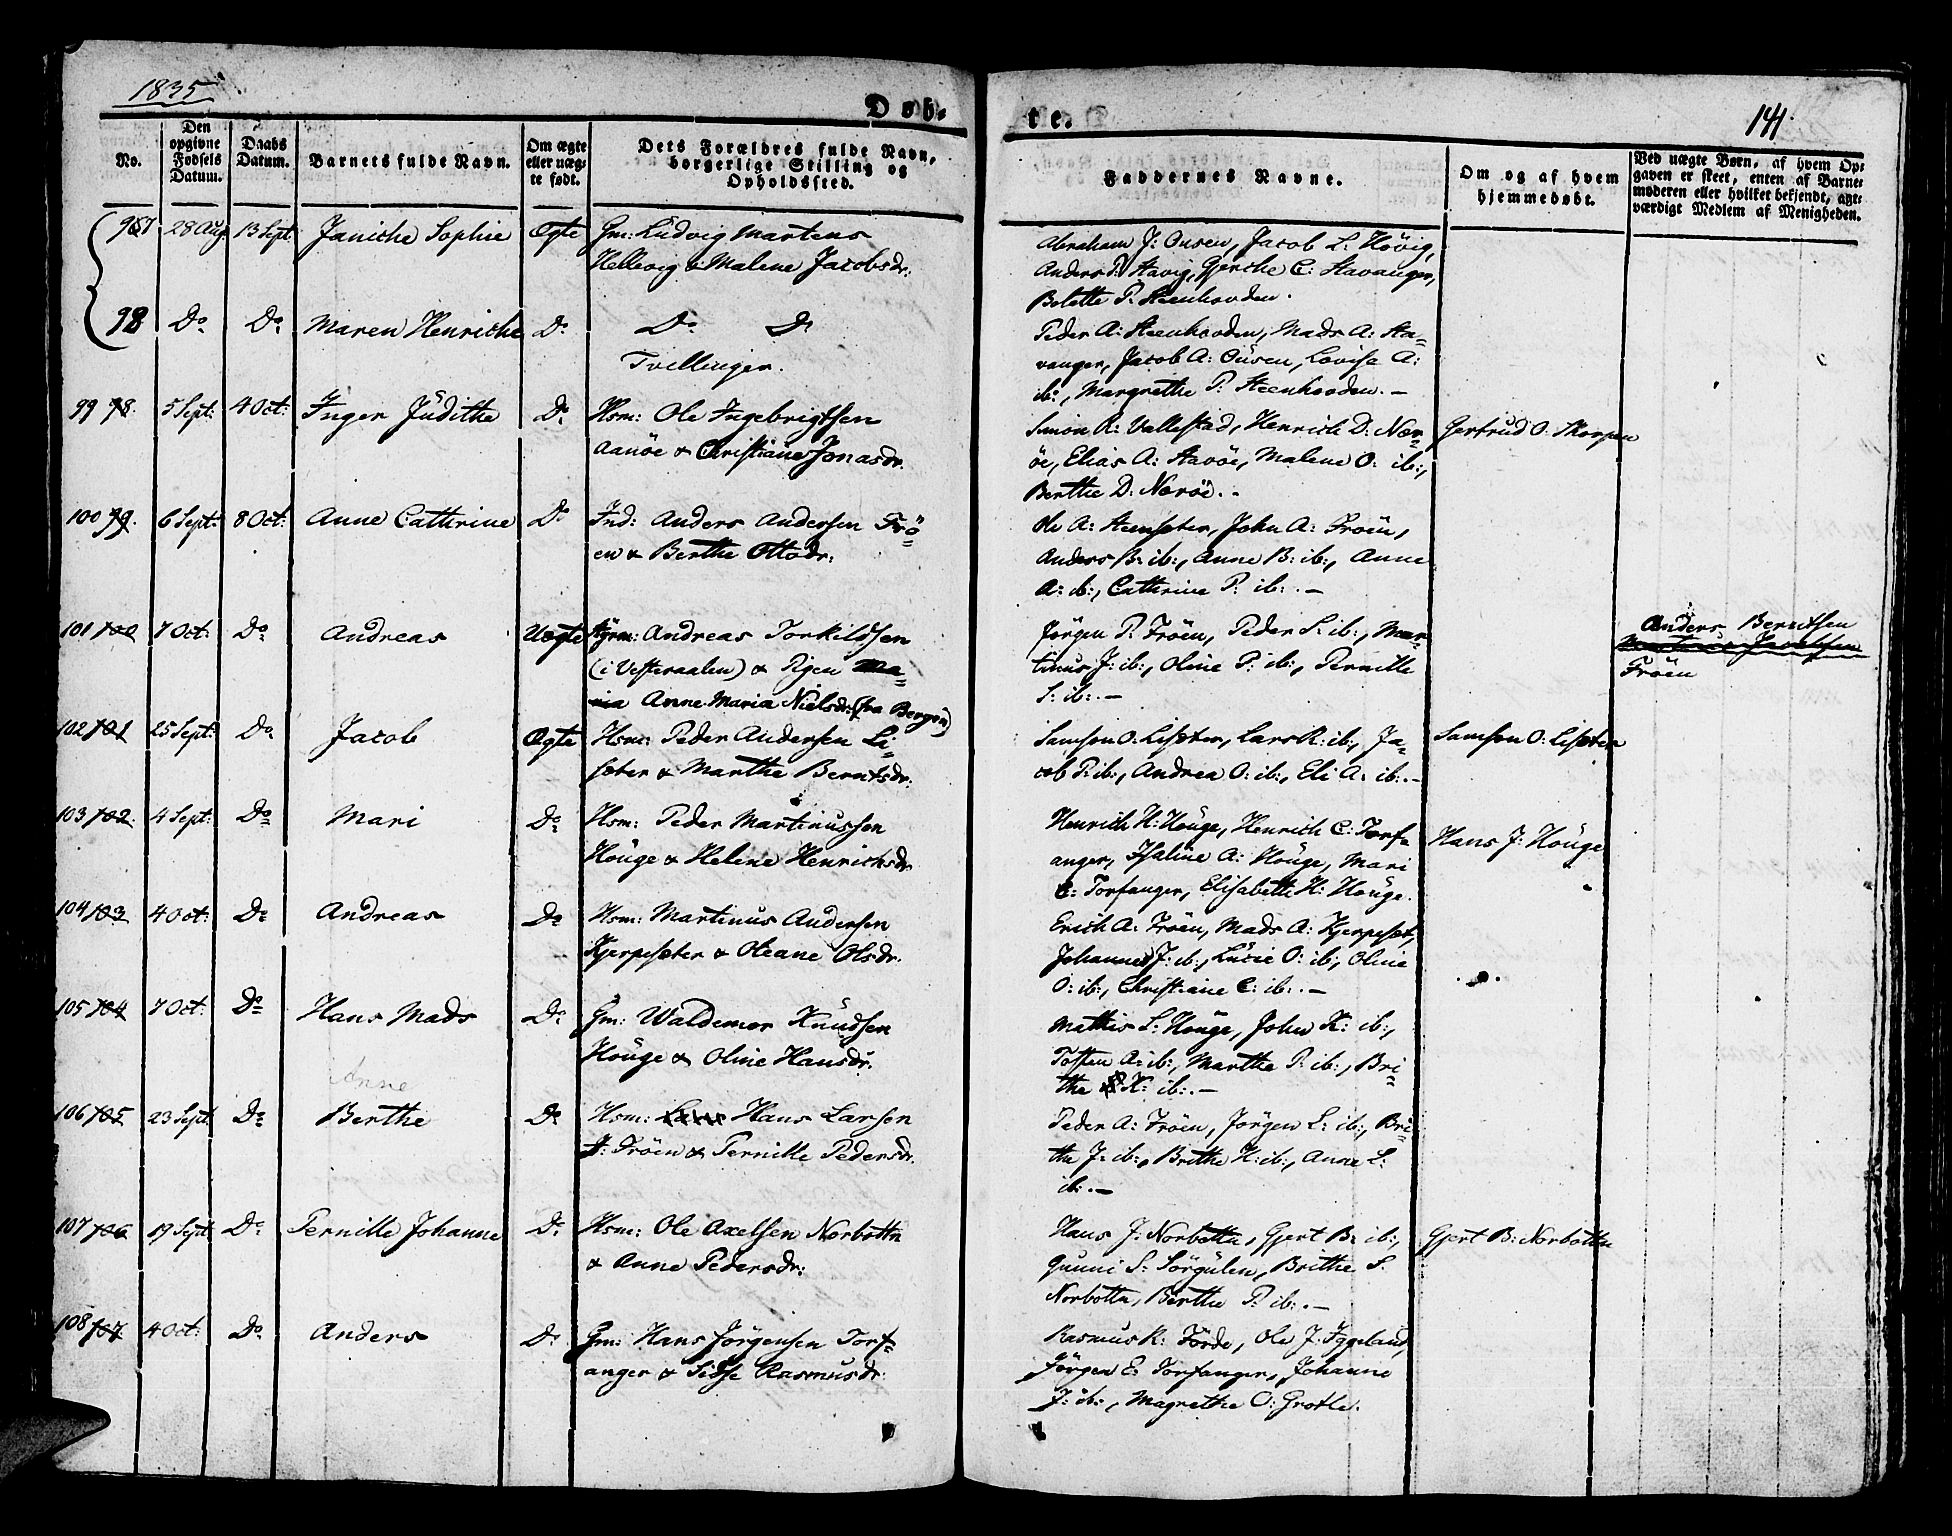 1835
Døb-
te.
141.
No.
Den opgivne Fødsels Datum.
Daabs Datum.
Barnets fulde Navn.
Om ægte eller uægte født.
Dets Forældres fulde Navn, borgerlige Stilling og Opholdssted.
Faddernes Navne.
Om og af hvem hjemmedøbt.
Ved uægte Børn, af hvem Opgaven er skeet, enten af Barnemoderen eller hvilket bekjendt, agtværdigt Medlem af Menigheden.
97 28 Aug 13 Sept Janiche Sophie Ægte Gm: Ludvig Martens
Hellevig & Malene Jacobsdr:
Abraham J: Ousen, Jacob L: Høvig,
Anders P. Stavig, Gjerche C: Stavanger,
Bolette P. Steenhovden.
98 Do Do Maren Henriche Do Do Do
Tvillinger.
Peder A: Steenhovden, Mads A: Sta-
vanger, Jacob A: Ousen, Lovise A:
ib:, Margrethe P: Steenhovden. –
99 98. 5 Sept: 4 Oct: Inger Judithe Do Hsm: Ole Ingebrigtsen
Aanøe & Christiane Jonasdr.
Simon R: Vallestad, Henrich D: Nær-
øe, Elias A: Stavøe, Malene O: ib:,
Berthe D: Nærøe. –
Gertrud O: Skorpen
100 99. 6 Sept: 8 Oct: Anne Cathrine Do Ind: Anders Andersen Frö-
en & Berthe Ottodr:
Ole A: Steensæter, John A: Fröen,
Anders B: ib:, Anne B: ib:, Anne
A: ib:, Cathrine P: ib:. –
101 100 7 Oct: Do Andreas Uægte Andreas Torkildsen
(i Vesteraalen) & Pigen Ma-
ria Anne Maria Nielsdr: (fra Bergen)
Jörgen P: Fröen, Peder S: ib:, Mar-
tinus J: ib:, Oline P: ib:, Pernille
S: ib:. –
Anders Berentsen
Fröen
102 101 25 Sept: Do Jacob Ægte Hsm: Peder Andersen Li-
sæter & Marthe Berntsdr:
Samson O: Lisæter, Lars R: ib:, Ja-
cob P: ib:, Andrea O: ib:, Eli A: ib:. –
Samson O: Lisæter
103 102. 4 Sept: Do Mari Do Hsm: Peder Martinussen
Houge & Helene Henrichsdr
Henrich H: Houge, Henrich C: Torf-
anger, Isaline A: Houge, Mari
C: Torfanger, Elisabeth H: Houge.
Hans J: Houge
104 103 4 Oct: Do Andreas Do Hsm: Martinus Andersen
Kjerpesæter & Oleane Olsdr.
Erich A: Fröen, Mads A: Kjerpeset,
Johannes J: ib:, Lucie O: ib:, Oline
O: ib:, Christiane C: ib:. –
105 104 7 Oct: Do Hans Mads Do Gm: Waldemor Knudsen
Houge & Oline Hansdr.
Mathis S: Houge, John K: ib:,
Tosten A: ib:, Marthe P: ib:, Bri-
the K: ib:. –
Anne
106 105 23 Sept Do Berthe Do Hsm: Lars Hans Larsen
Fröen & Pernille Pedersdr.
Peder A: Fröen, Jörgen L: ib:, Bri-
the J: ib:, Brithe H: ib:, Anne L:
ib:. –
107 106 19 Sept Do Pernille Johanne Do Hsm: Ole Axelsen Norbotten
& Anne Pedersdr:
Hans J: Norbotten, Gjert B: ib:,
Gunni S: Sörgulen, Brithe S.
Norbotten, Berthe P: ib:. –
Gjert B: Norbotten
108 107 4 Oct: Do Anders Do Gm: Hans Jörgensen Torf-
anger & Sidse Rasmusdr:
Rasmus R: Förde, Ole J: Iggeland,
Jörgen E: Torfanger, Johanne
J: ib:, Magrethe O: Grotle.